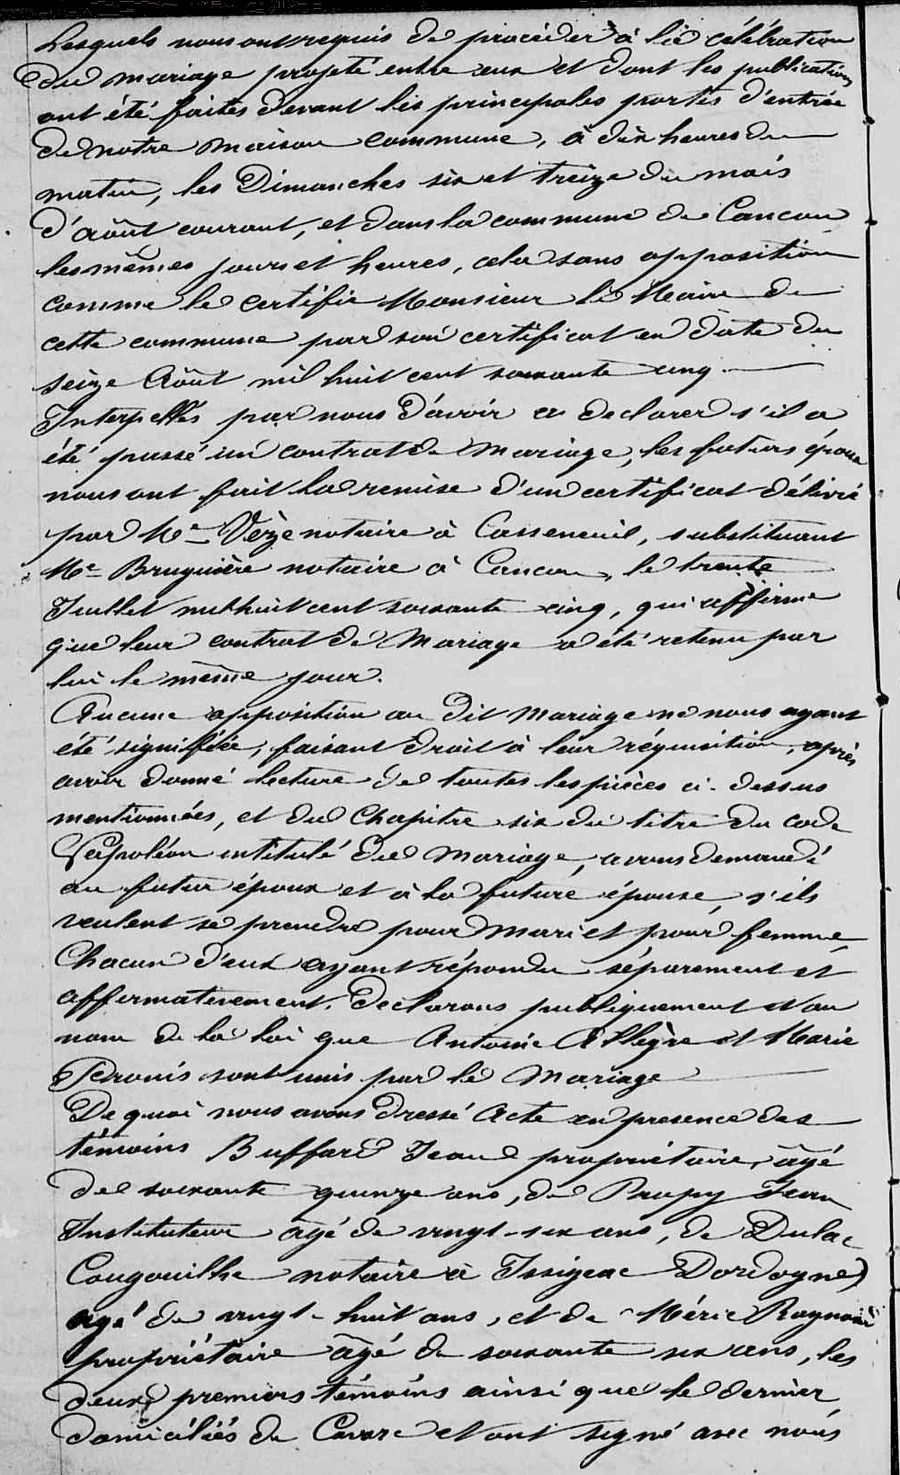 Lesquels nous ont requis de procéder à la célébration
du mariage projeté entre eux et dont les publications
ont été faites devant les principales portes d'entrée
de notre maison commune, à dix heures du
matin, les Dimanches six et treize du mois
d'Août courant, et dans la commune de Cancon
les mêmes jours et heures, cela sans opposition
comme le certifie Monsieur le Maire de
cette commune par son certificat en date du
seize Août mil huit cent soixante cinq.
Interpellés par nous d'avoir à declarer s'il a
été passé un contrat de mariage, les futurs époux
nous ont fait la remise d'un certificat délivré
par Me Vèze notaire à Casseneuil, substituant
Me Bruguière notaire à Cancon, le trente
Juillet mil huit cent soixante cinq, qui affirme
que leur contrat de Mariage a été retenu par
lui le même jour.
Aucune opposition au dit Mariage ne nous ayant
été signifiée, faisant droit à leur réquisition, après
avoir donné lecture de toutes les pièces ci-dessus
mentionnées, et du Chapitre six du titre du code
Napoléon intitulé du Mariage, avons demandé
au futur époux et à la future épouse, s'ils
veulent se prendre pour mari et pour femme,
Chacun d'eux ayant répondu séparement et
affirmativement. Declarons publiquement et au
nom de la loi que Antoine Allègre et Marie
Pedronis sont unis par le Mariage
De quoi nous avons dressé Acte en presence des
témoins Buffard Jean propriétaire, âgé
de soixante quinze ans, de Paupy Jean
Instituteur âgé de vingt-six ans, de Dulac
Cougouilhe notaire à Issigeac Dordogne)
agé de vingt-huit ans, et de Méric Raymond
propriétaire âgé de soixante six ans, les
deux premiers témoins ainsi que le dernier
domiciliés de Cavarc et ont signé avec nous